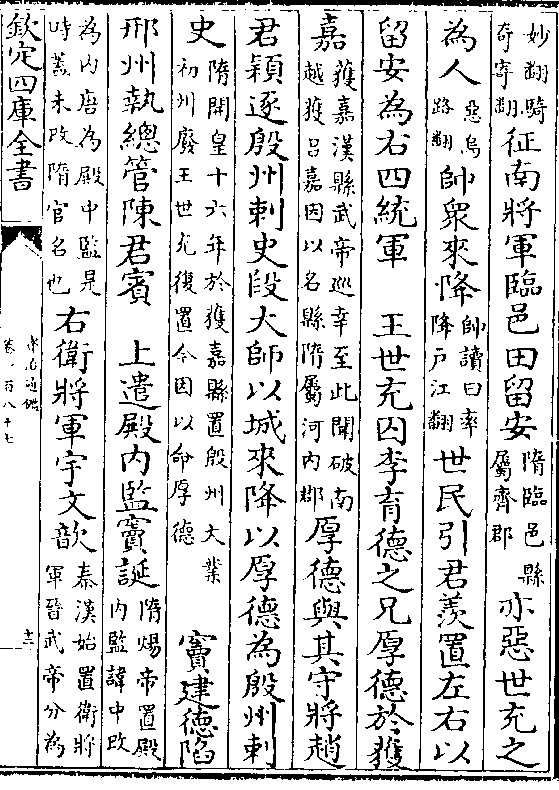 妙翻騎
奇寄翻
征南將軍臨邑田留安
隋臨邑縣
屬齊郡
亦惡世充之
為人
惡烏
路翻
帥衆來降
帥讀曰率
降戸江翻
世民引君羨置左右以
留安為右四統軍　王世充囚李育德之兄厚德於獲
嘉
獲嘉漢縣武帝巡幸至此聞破南
越獲吕嘉因以名縣隋屬河内郡
厚德與其守將趙
君穎逐殷州刺史段大師以城來降以厚德為殷州刺
史
隋開皇十六年於獲嘉縣置殷州大業
初州廢王世充復置今因以命厚德
竇建德陷
邢州執總管陳君賓　上遣殿内監竇誕
隋煬帝置殿
内監諱中改
為内唐為殿中監是
時蓋未改隋官名也
右衛將軍宇文歆
秦漢始置衛將
軍晉武帝分為
欽定四庫全書
資治通鑑
卷一百八十七